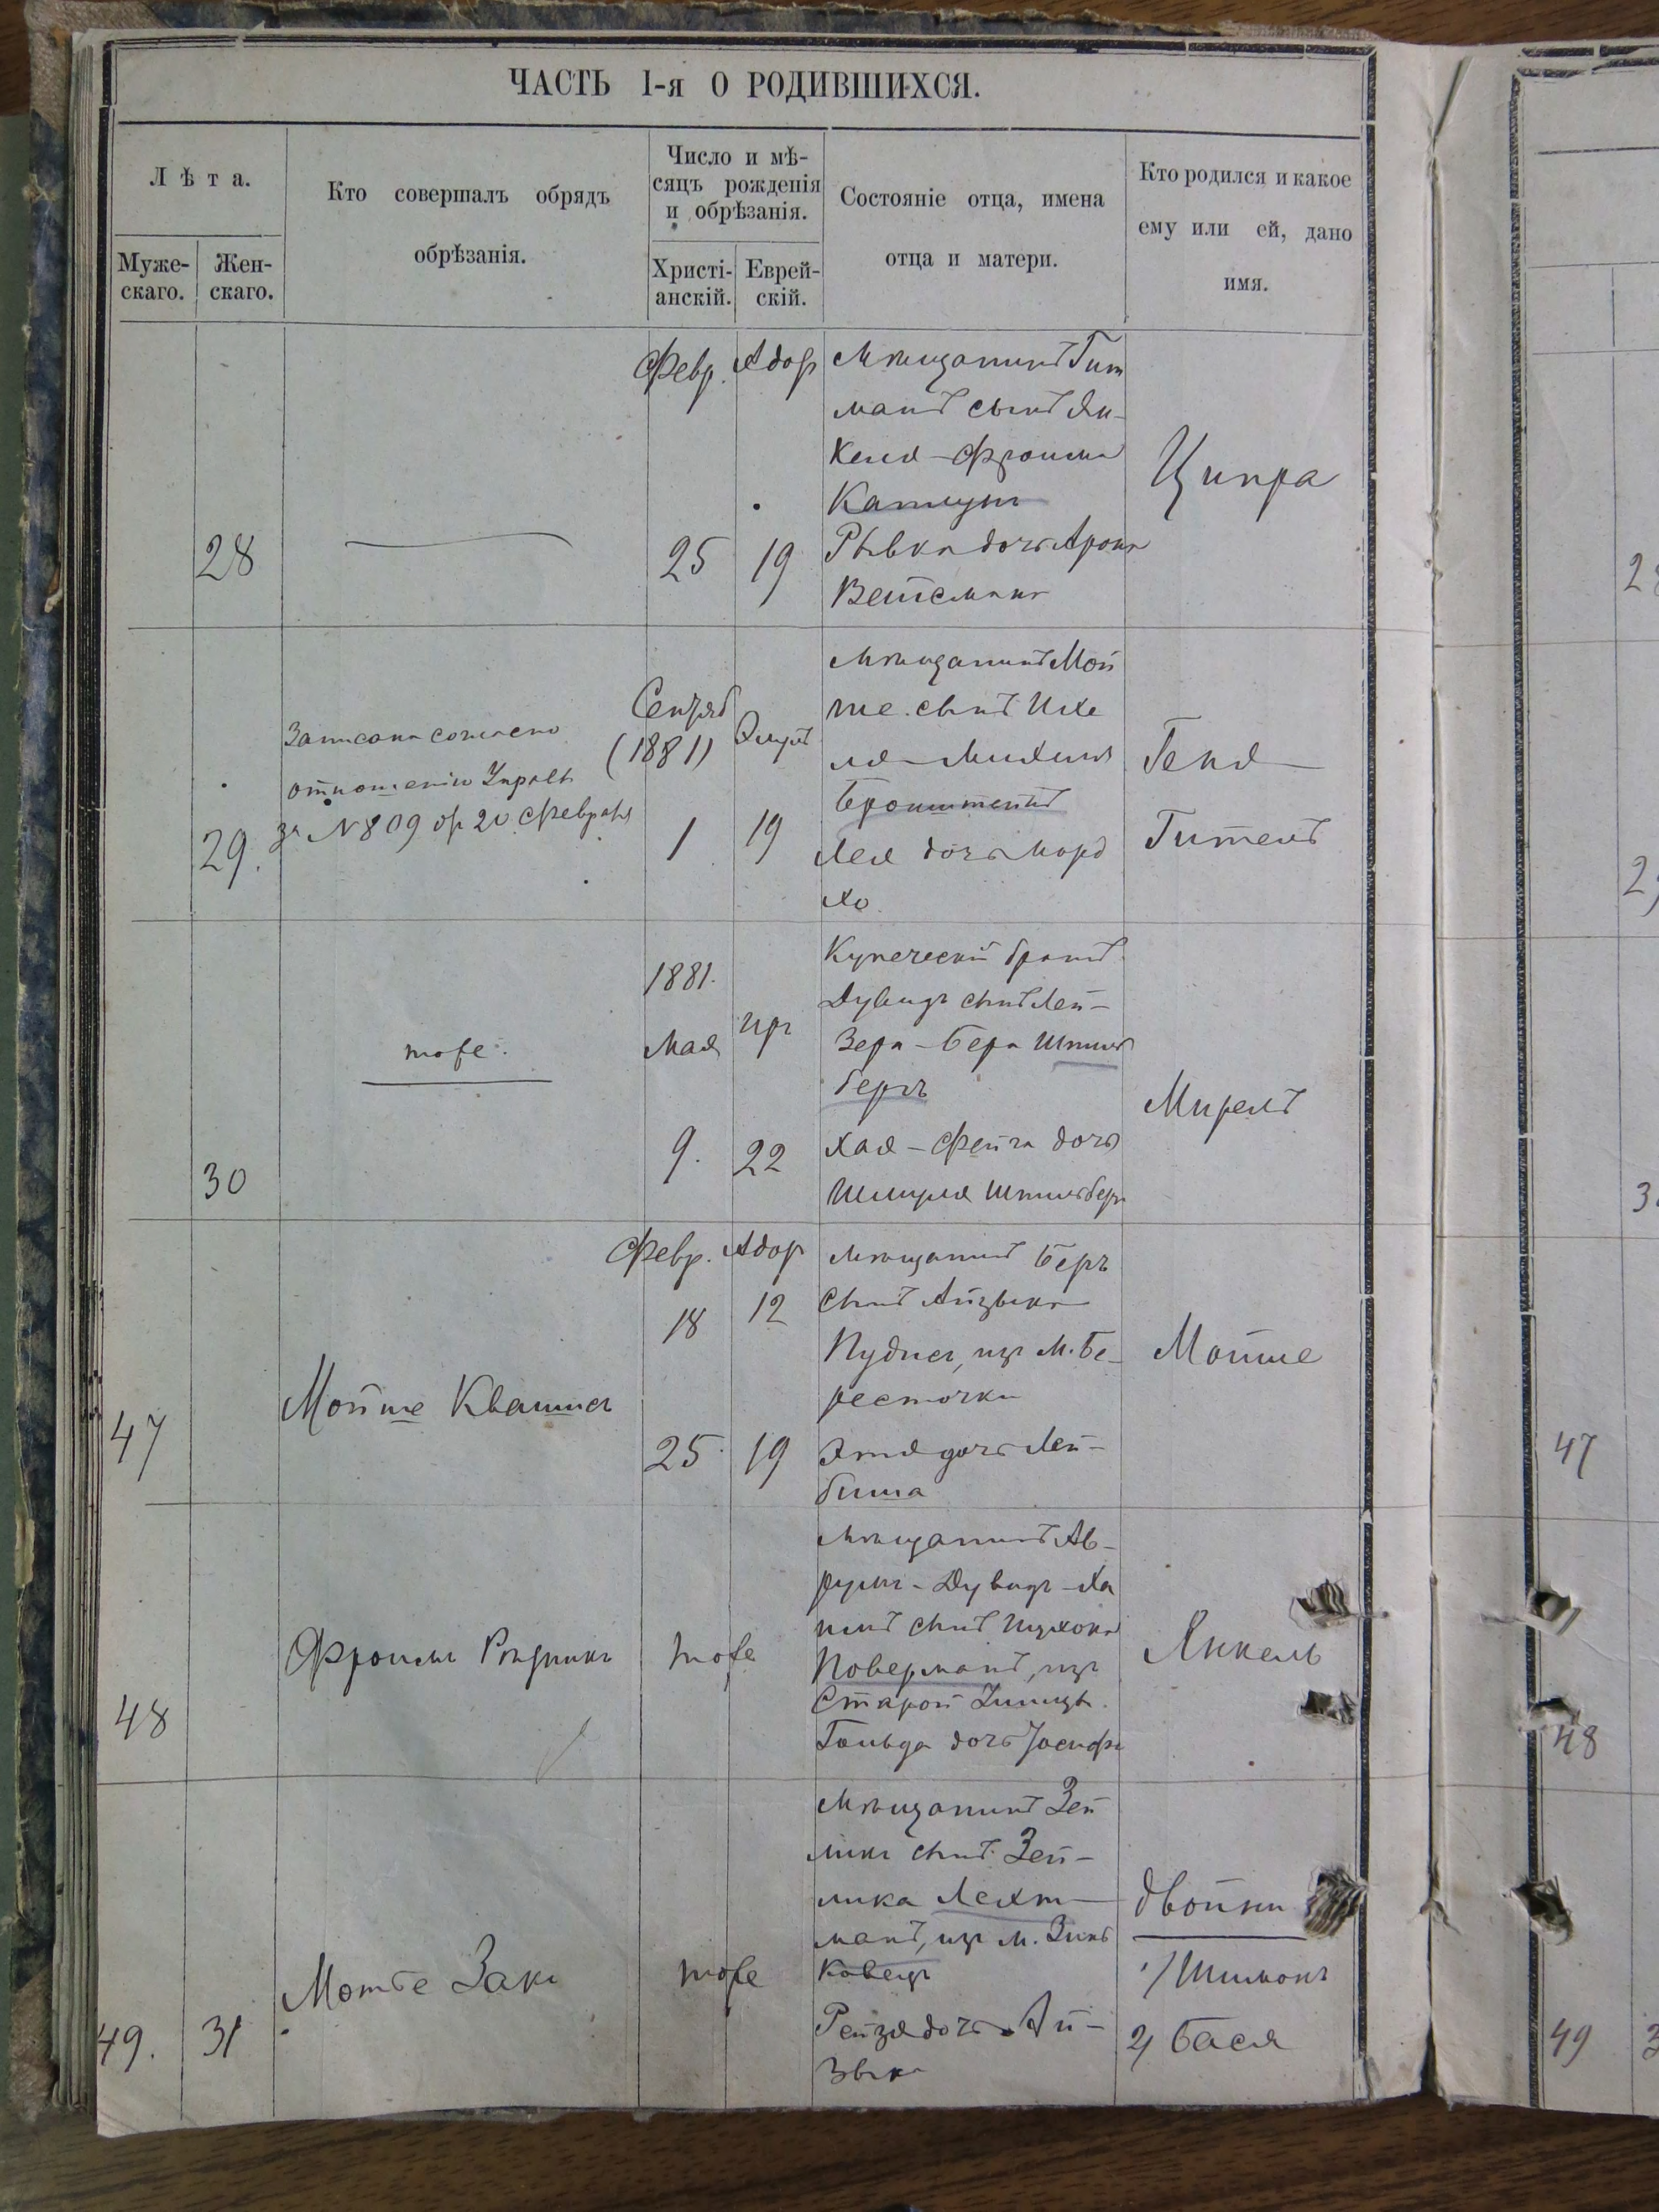 ЧАСТЬ I-я О РОДИВШИХСЯ.
Лѣта.
Муже-
скаго.
Жен-
скаго.
Кто совершалъ обрядъ
обрѣзанія.
Число и мѣ-
сяцъ рожденія
и обрѣзанія.
Христі-
анскій.
Еврей-
скій.
Состояніе отца, имена
отца и матери.
Кто родился и какое
ему или ей, дано
имя.
28
Февр.
25
Адор
19
Мѣщанинъ Гит
манъ сынъ Ян-
келя-Фроима
Рывка дочь Арона
Вейсмана
Ципра
29.
Записана согласно
отношенію Управы
за N 809 от 20 Февраля
Сентяб
(1881)
1
Элулъ
19
Мѣщанинъ Мой
ше сынъ Ихе
ля-Михеля
Бронштейнъ
Лея дочь Морд
хо
Геня-
Гитель
30
тоже.
1881.
Мая
9.
Ир
22
Купеческій братъ
Дувидъ сынъ Лей-
зера-Бера Штиль
беръ
Хая-Фейга дочь
Шмуля Штильбера
Мирель
47
Мойше Квашнъ
Февр.
18
25
Адор
12
19
Мѣщанинъ Беръ
сынъ Айзыка
изъ М. Бе-
ресточки
Этя дочь Лей-
биша
Мойше
48
Фроимъ Рѣзникъ
тоже
Мѣщанинъ Ав-
румъ-Дувидъ-Ха
имъ сынъ Ицхока
Поверманъ, изъ
Старой
Гольда дочь Іосифа
Янкель
49.
31
Мотье Закъ
тоже
Мѣщанинъ Зей
ликъ сынъ Зей-
лика Лехт-
манъ, изъ м. Зинь
ковецъ
Рейзя дочь Ай-
зыка
двойни
1/ Шимонъ
2/ Бася
47
48
49